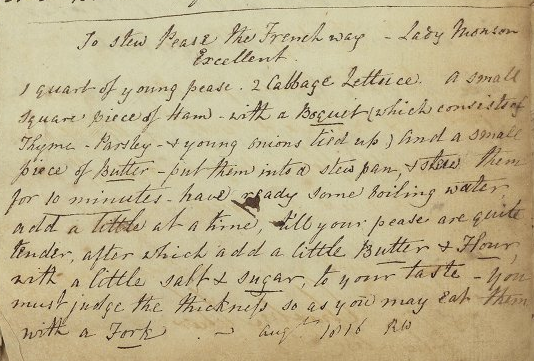 To stew Pease the French way - Lady Monson
Excellent.
1 quart of young pease. 2 Cabbage Lettuce. A small
square piece of Ham - with a Boquit (which consists of
Thyme - Parsley - & young onions tied up) and a small
piece of Butter - put them into a stew pan, & stew them
for 10 minutes - have ready some boiling water
add a little at a time, till your pease are quite
tender, after which add a little Butter & Flour,
with a little salt & sugar, to your taste - you
must judge the thickness so as you may eat them
with a Fork. - augst 1816 RW